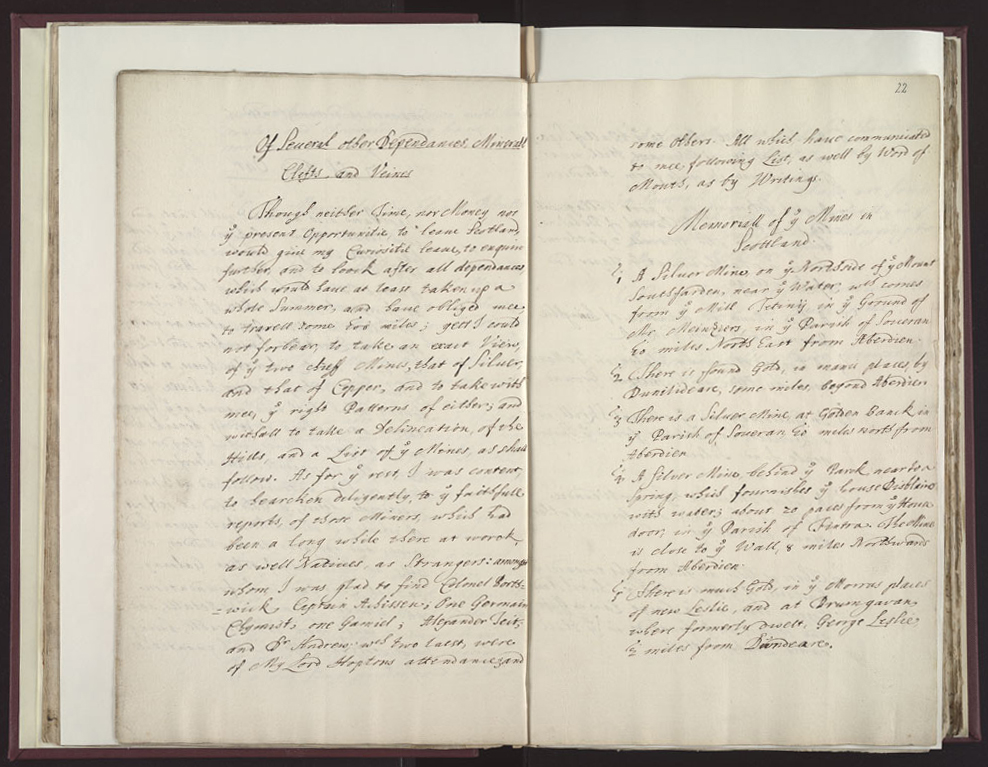 Of Several other Dependances, Minerall
Clefts, and Veines
Though neither Time, nor Money nor
yͤ present Opportunitie to leave Scotland,
would give my Curiositie leave, to enquire
further, and to loock after all dependances,
which would have at least taken up a
whole Summer, and have obliged mee,
to travell some 600 miles; yett I could
not forbear, to take an exact View,
of yͤ two cheff Mines, that of Silver,
and that of Copper, and to take with
mee, yͤ right Patterns of either; and
withall to take a Delineation, of the
Hills, and a List of yͤ Mines, as shall
follow. As for yͤ rest, I was content,
to hearcken diligently, to yͤ faithfull
reports, of those Miners, which had
been a long while there at worck,
as well Natives, as Strangers: amongst
whom I was glad to find Colonel Borth=
=wick, Captain; One German
Chymist; one Gamiel; Alexander Seit;
and Dr Andrew; wch two last, were
of My Lord Hoptons attendance; and
22
some others. All which, have communicated
to mee following List, as well by Word of
Mouth, as by Writings.
Memoriall of yͤ Mines in
Scottland.
1 A Silver Mine, on yͤ Northside of yͤ Mount
near yͤ Water, wch comes
from yͤ Mill in yͤ Ground of
Mr. Meinzeers, in yͤ Parish of Soveran
miles North East from Aberdien
2 There is found Gold, in manie places, by
Dunilideare, some miles, beyond Aberdien
3 There is a Silver Mine, at Golden Banck in
yͤ Parish of Soveran miles north from
Aberdien
4 A Silver Mine, behind yͤ Parck near to a
Spring, which fournishes yͤ house Disblaire
with water; about 20 paces from yͤ House
door, in yͤ Parish of Fintra. The Mine
is close to yͤ Wall, 8 miles Northwards
from Aberdien.
5 There is much Gold, in yͤ places
of new Leslie, and at Drumgavan,
where formerly dwelt, George Leslie,
miles from Dundeare.